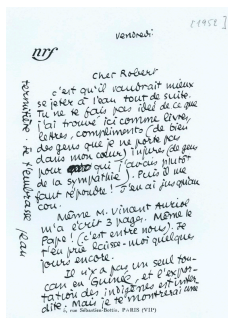 vendredi
[1952]
nrf
cher Robert
c'est qu'il vaudrait mieux
se jeter à l'eau tout de suite.
Tu ne te fais pas idée de ce que
j'ai trouvé ici comme livres,
lettres, compliments (de bien
des gens que je ne porte pas
dans mon cœur) injures (de gens
pour qui j'avais plutôt
de la sympathie). Puis il me
faut répondre! j'en ai jusqu'au
cou.
Même M. Vincent Auriol
m'a écrit 3 pages. Même le
Pape! (c'est entre nous). Je
t'en prie laisse-moi quelques
jours encore.
Il n'y a pas un seul tou-
can en Guinée et l'expor-
tation des indigènes est inter
dite. Mais je te montrerai une
5, rue Sébastien-Bottin, PARIS (VIIe)
termitière. Je t'embrasse
Jean